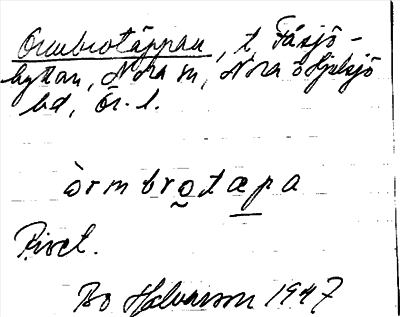 Ormbrotäppan, t. Fåsjö-
hyttan, Nora sn, Nora o Hjulsjö
bd, Ör. l.
òrmbrotæpa
Rivet.
Bo Halvarson 1947